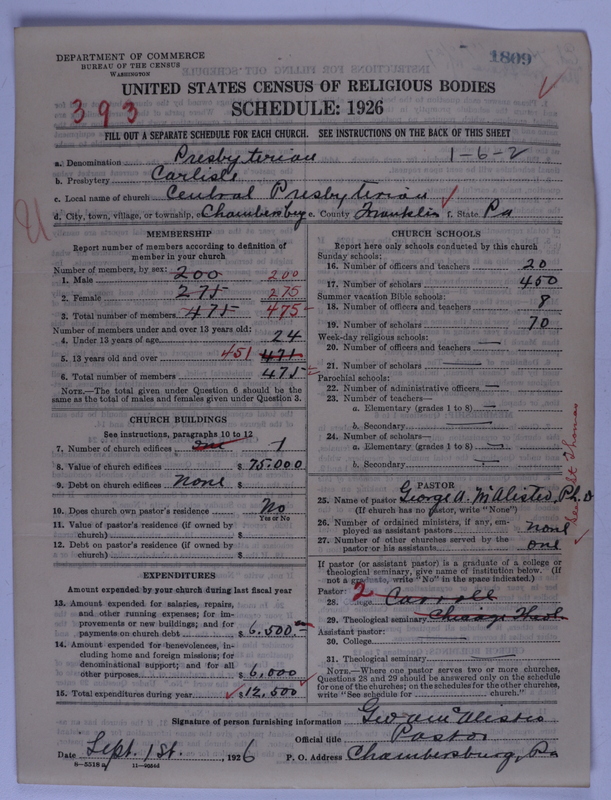 DEPARTMENT OF COMMERCE
BUREAU OF THE CENSUS
WASHINGTON
1809
UNITED STATES CENSUS OF RELIGIOUS BODIES
393
SCHEDULE: 1926
FILL OUT A SEPARATE SCHEDULE FOR EACH CHURCH. SEE INSTRUCTIONS ON THE BACK OF THIS SHEET
a. Denomination Presbyterian 1-6-2
b. Presbytery Carlisle
c. Local name of church Central Presbyterian
d. City, town, village, or township, Chambersburg e. County Franklin f. State Pa
MEMBERSHIP
Report number of members according to definition of
member in your church
Number of members, by sex:
1. Male 200 200
2. Female 275 275
3. Total number of members 475 475
Number of members under and over 13 years old:
4. Under 13 years of age 24
5. 13 years old and over 451 471
6. Total number of members 475
NOTE.—The total given under Question 6 should be the
same as the total of males and females given under Question 3.
CHURCH BUILDINGS
See instructions, paragraphs 10 to 12
7. Number of church edifices one 1
8. Value of church edifices $ 75.000
9. Debt on church edifices None $
10. Does church own pastor's residence? No
Yes or No
11. Value of pastor's residence (if owned by
church) $
12. Debt on pastor's residence (if owned by
church) $
EXPENDITURES
Amount expended by your church during last fiscal year
13. Amount expended for salaries, repairs,
and other running expenses; for im-
provements or new buildings; and for
payments on church debt $ 6.500.
14. Amount expended for benevolences, in-
cluding home and foreign missions; for
denominational support; and for all
other purposes $ 6.000
15. Total expenditures during year $ 12,500
CHURCH SCHOOLS
Report here only schools conducted by this church
Sunday schools:
16. Number of officers and teachers 20
17. Number of scholars 450
Summer vacation Bible schools:
18. Number of officers and teachers 8
19. Number of scholars 70
Week-day religious schools:
20. Number of officers and teachers —
21. Number of scholars —
Parochial schools:
22. Number of administrative officers —
23. Number of teachers—
a. Elementary (grades 1 to 8) —
b. Secondary —
24. Number of scholars—
a. Elementary (grades 1 to 8) —
b. Secondary —
PASTOR
25. Name of pastor George A. McAlister, Ph. D
(If church has no pastor, write "None")
26. Number of ordained ministers, if any, em-
ployed as assistant pastors none
27. Number of other churches served by the
pastor or his assistants one
St Thomas
If pastor (or assistant pastor) is a graduate of a college or
theological seminary, give name of institution below. (If
not a graduate, write "No" in the space indicated.)
Pastor: 2
28. College Carroll
29. Theological seminary Chicago Theol
Assistant pastor:
30. College —
31. Theological seminary —
NOTE.—Where one pastor serves two or more churches,
Questions 28 and 29 should be answered only on the schedule
for one of the churches; on the schedules for the other churches,
write "See schedule for church."
Signature of person furnishing information Geo A McAlister
Official title Pastor
Date Sept. 1st. , 1926 P. O. Address Chambersburg, Pa
8—5518 a 11—9584d